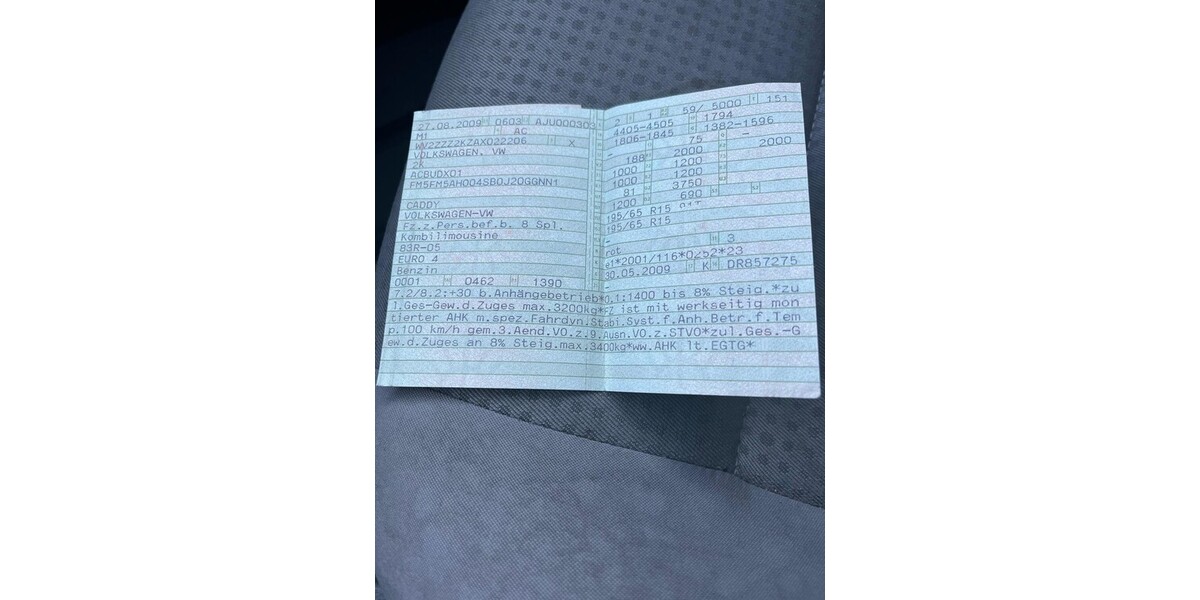 27.08.2009 0603 AJU000303
M1 AC
WV2ZZZ2KZAX022206 X
VOLKSWAGEN, VW
2K
ACBUDX01
FM5FM5AH004SB0J20GGNN1
CADDY
VOLKSWAGEN-VW
Fz.z.Pers.bef.b. 8 Spl.
Kombilimousine
83R-05
EURO 4
Benzin
0001 0462 1390
2 1 59/ 5000 151
4405-4505 1794
1806-1845 1382-1596
- 75 -
188 2000 2000
1000 1200
1000 1200
81 3750
1200 690
195/65 R15 91T
195/65 R15
-
rot 3
e1*2001/116*0252*23
30.05.2009 K DR857275
-
7.2/8.2:+30 b.Anhängebetrieb*O.1:1400 bis 8% Steig.*zu
l.Ges-Gew.d.Zuges max.3200kg*FZ ist mit werkseitig mon
tierter AHK m.spez.Fahrdyn.Stabi.Syst.f.Anh.Betr.f.Tem
p.100 km/h gem.3.Aend.VO.z.9.Ausn.VO.z.STVO*zul.Ges.-G
ew.d.Zuges an 8% Steig.max.3400kg*ww.AHK lt.EGTG*